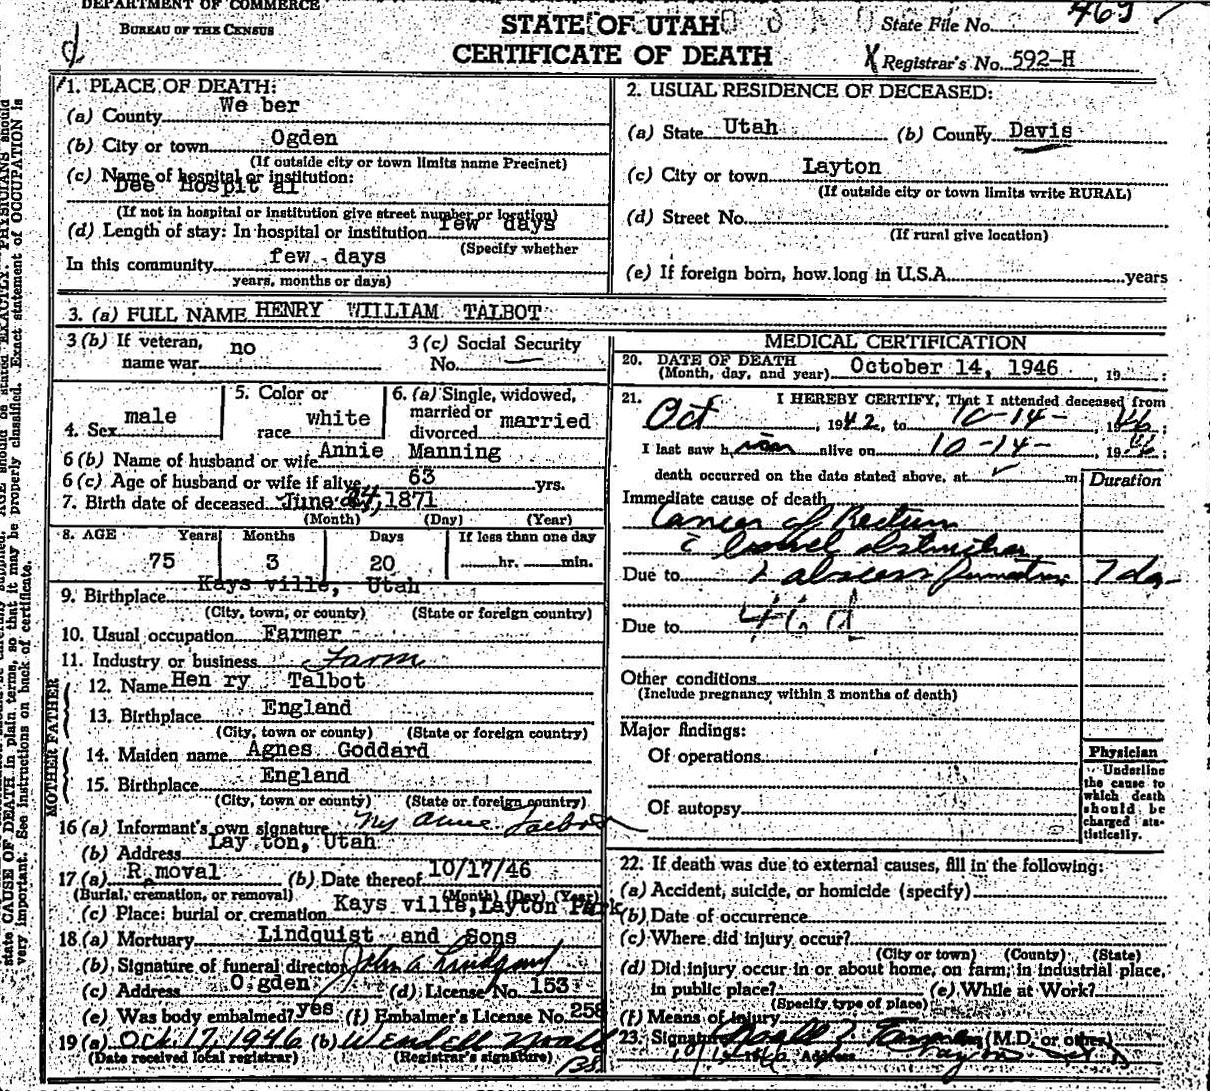 DEPARTMENT OF COMMERCE
BUREAU OF THE CENSUS
STATE OF UTAH
CERTIFICATE OF DEATH
State File No.
Registrar's No. 592-H
1. PLACE OF DEATH:
(a) County We ber
(b) City or town Ogden
(If outside city or town limits name Precinct)
(c) Name of hospital or institution:
Dee Hospit al
(If not in hospital or institution give street number or location)
(d) Length of stay: In hospital or institution few days
(Specify whether
In this community few days
years, months or days)
2. USUAL RESIDENCE OF DECEASED:
(a) State Utah (b) County Davis
(c) City or town Layton
(If outside city or town limits write RURAL)
(d) Street No.
(If rural give location)
(e) If foreign born, how long in U.S.A. years
3. (a) FULL NAME HENRY WILLIAM TALBOT
3 (b) If veteran, name war no
3 (c) Social Security No.
4. Sex male
5. Color or race white
6. (a) Single, widowed, married or divorced married
6 (b) Name of husband or wife Annie Manning
6 (c) Age of husband or wife if alive 63 yrs.
7. Birth date of deceased June 24, 1871
(Month) (Day) (Year)
8. AGE Years Months Days If less than one day
75 3 20 hr. min.
9. Birthplace Kays ville, Utah
(City, town, or county) (State or foreign country)
10. Usual occupation Farmer
11. Industry or business Farm
FATHER
12. Name Hen ry Talbot
13. Birthplace England
(City, town or county) (State or foreign country)
MOTHER
14. Maiden name Agnes Goddard
15. Birthplace England
(City, town or county) (State or foreign country)
16 (a) Informant's own signature Mrs Annie Talbot
(b) Address Lay ton, Utah
17 (a) R moval (b) Date thereof 10/17/46
(Burial, cremation, or removal) (Month) (Day) (Year)
(c) Place: burial or cremation Kays ville, Layton Park
18. (a) Mortuary Lindquist and Sons
(b) Signature of funeral director John A Lindquist
(c) Address O gden (d) License No. 153
(e) Was body embalmed? yes (f) Embalmer's License No. 258
19 (a) Oct. 17, 1946 (b) Wendell
(Date received local registrar) (Registrar's signature)
MEDICAL CERTIFICATION
20. DATE OF DEATH
(Month, day, and year) October 14, 1946, 19
21. I HEREBY CERTIFY, That I attended deceased from
Oct, 1942, to 10-14-, 1946;
I last saw him alive on 10-14-, 1946;
death occurred on the date stated above, at m
Duration
Immediate cause of death
Cancer of Rectum
c bowel obstruction
Due to & abscess formation 7 da
Due to 46 d
Other conditions
(Include pregnancy within 3 months of death)
Major findings:
Of operations
Of autopsy
Physician
Underline the cause to which death should be charged statistically.
22. If death was due to external causes, fill in the following:
(a) Accident, suicide, or homicide (specify)
(b) Date of occurrence
(c) Where did injury occur?
(City or town) (County) (State)
(d) Did injury occur in or about home, on farm, in industrial place,
in public place? (e) While at Work?
(Specify type of place)
(f) Means of injury
23. Signature (M.D. or other)
Address